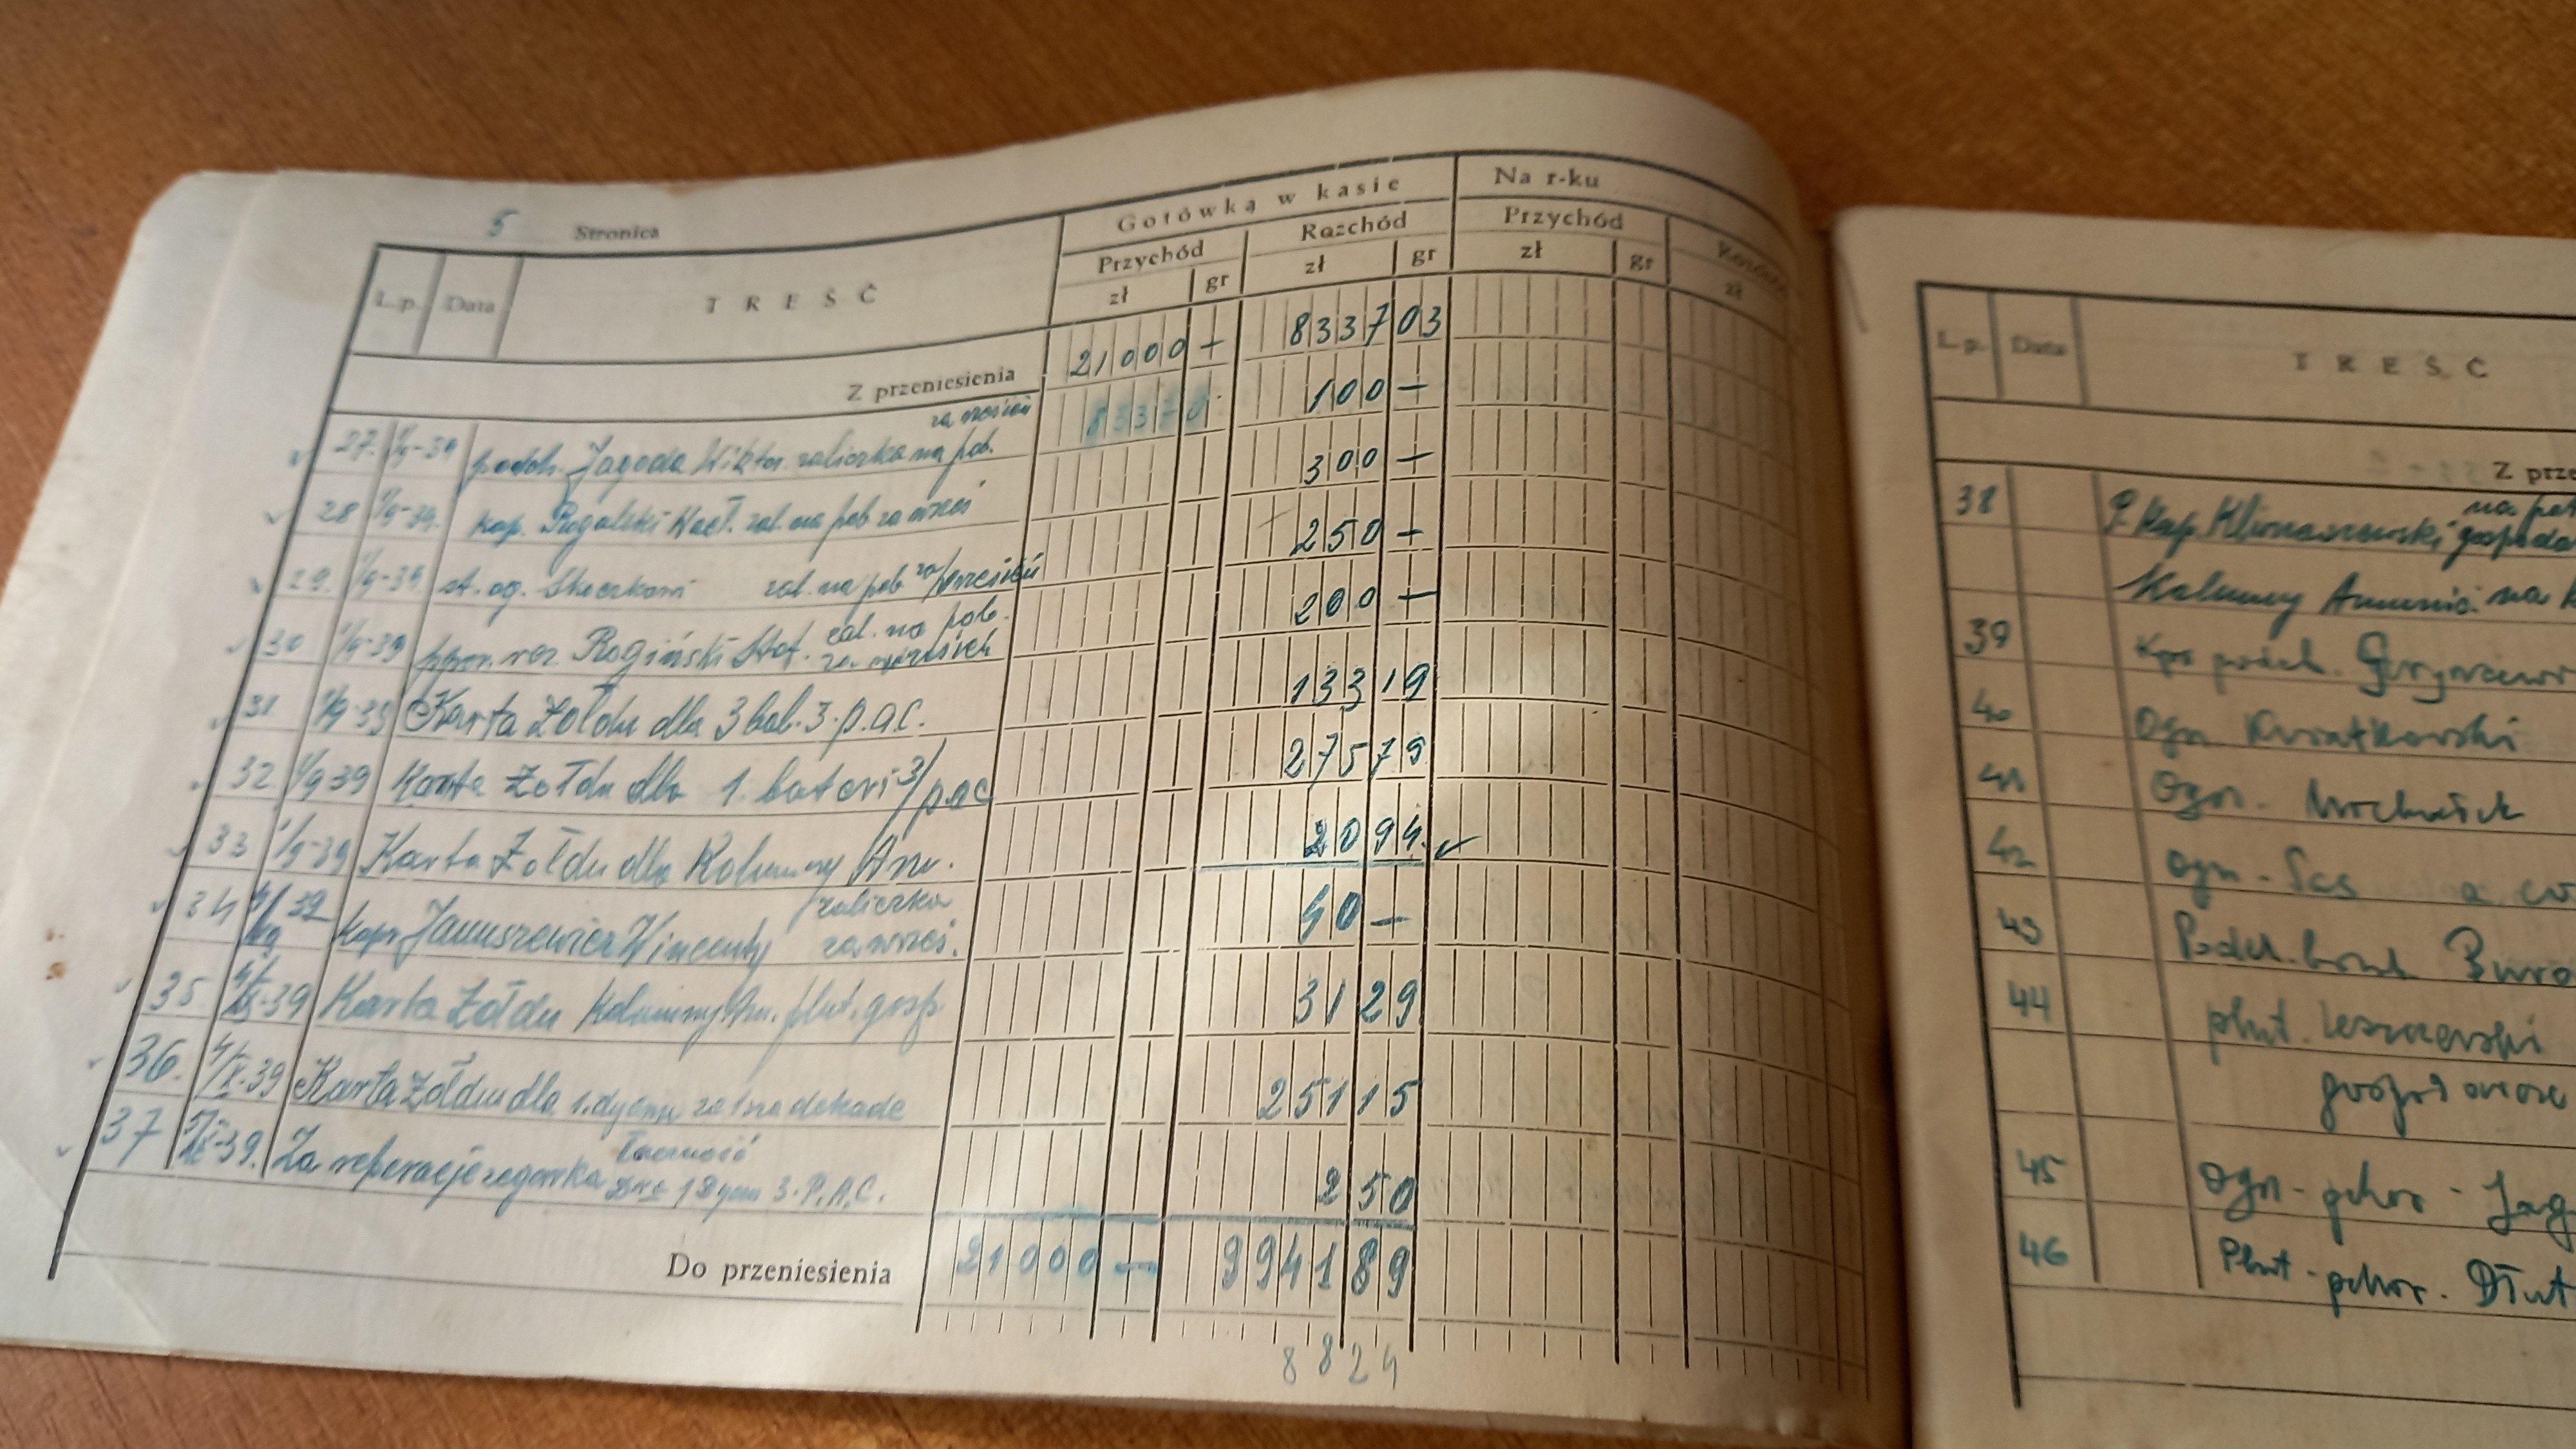 5 Stronica
L.p. Data TREŚĆ Gotówką w kasie Na r-ku
Przychód Rozchód Przychód
zł gr zł gr zł gr zł
Z przeniesienia 21000 — 8337 03
za wrzesień
27. 1/9-39 podch. Jagoda Wiktor zaliczka na pob. 100 —
28 1/9-39. kap. Rogalski Wacł. zal. na pob za wrześ 300 —
29. 1/9-39 st. og. zal. na pob za wrzesień 250 —
30 1/9-39 ppor. rez. Rogiński Stef. zal. na pob. 200 —
za wrzesień
31 1/9-39 Karta Żołdu dla 3 bat. 3. p.a.c. 133 19
32. 1/9 39 Karta Żołdu dla 1. baterii 3/p.a.c 275 79
33 1/9-39 Karta Żołdu dla Kolumny Am. 20 94
34 39 kapr Januszewicz Wincenty zaliczka 40 —
za wrześ.
35. 4/IX-39 Karta Żołdu Kolumny Am. plut. gosp. 31 29
36. 4/IX-39 Karta Żołdu dla 1. dyonu za 1sza dekade 251 15
37 5/IX-39. Za reperacje zegarka łączność 2 50
1 Dyon 3. P.A.C.
Do przeniesienia 21000 — 9941 89
8824
L.p. Data TREŚĆ
Z prze
38 P. kap. Klimaszewski na pot
gospoda
Kolumny Amunic. na
39 Kpr podch.
40 Ogn Kwiatkowski
41 Ogn.
42 ogn. Sas
43 Podch.
44 plut.
45 Ogn. pchor. Jag
46 Plut. pchor. Dłut